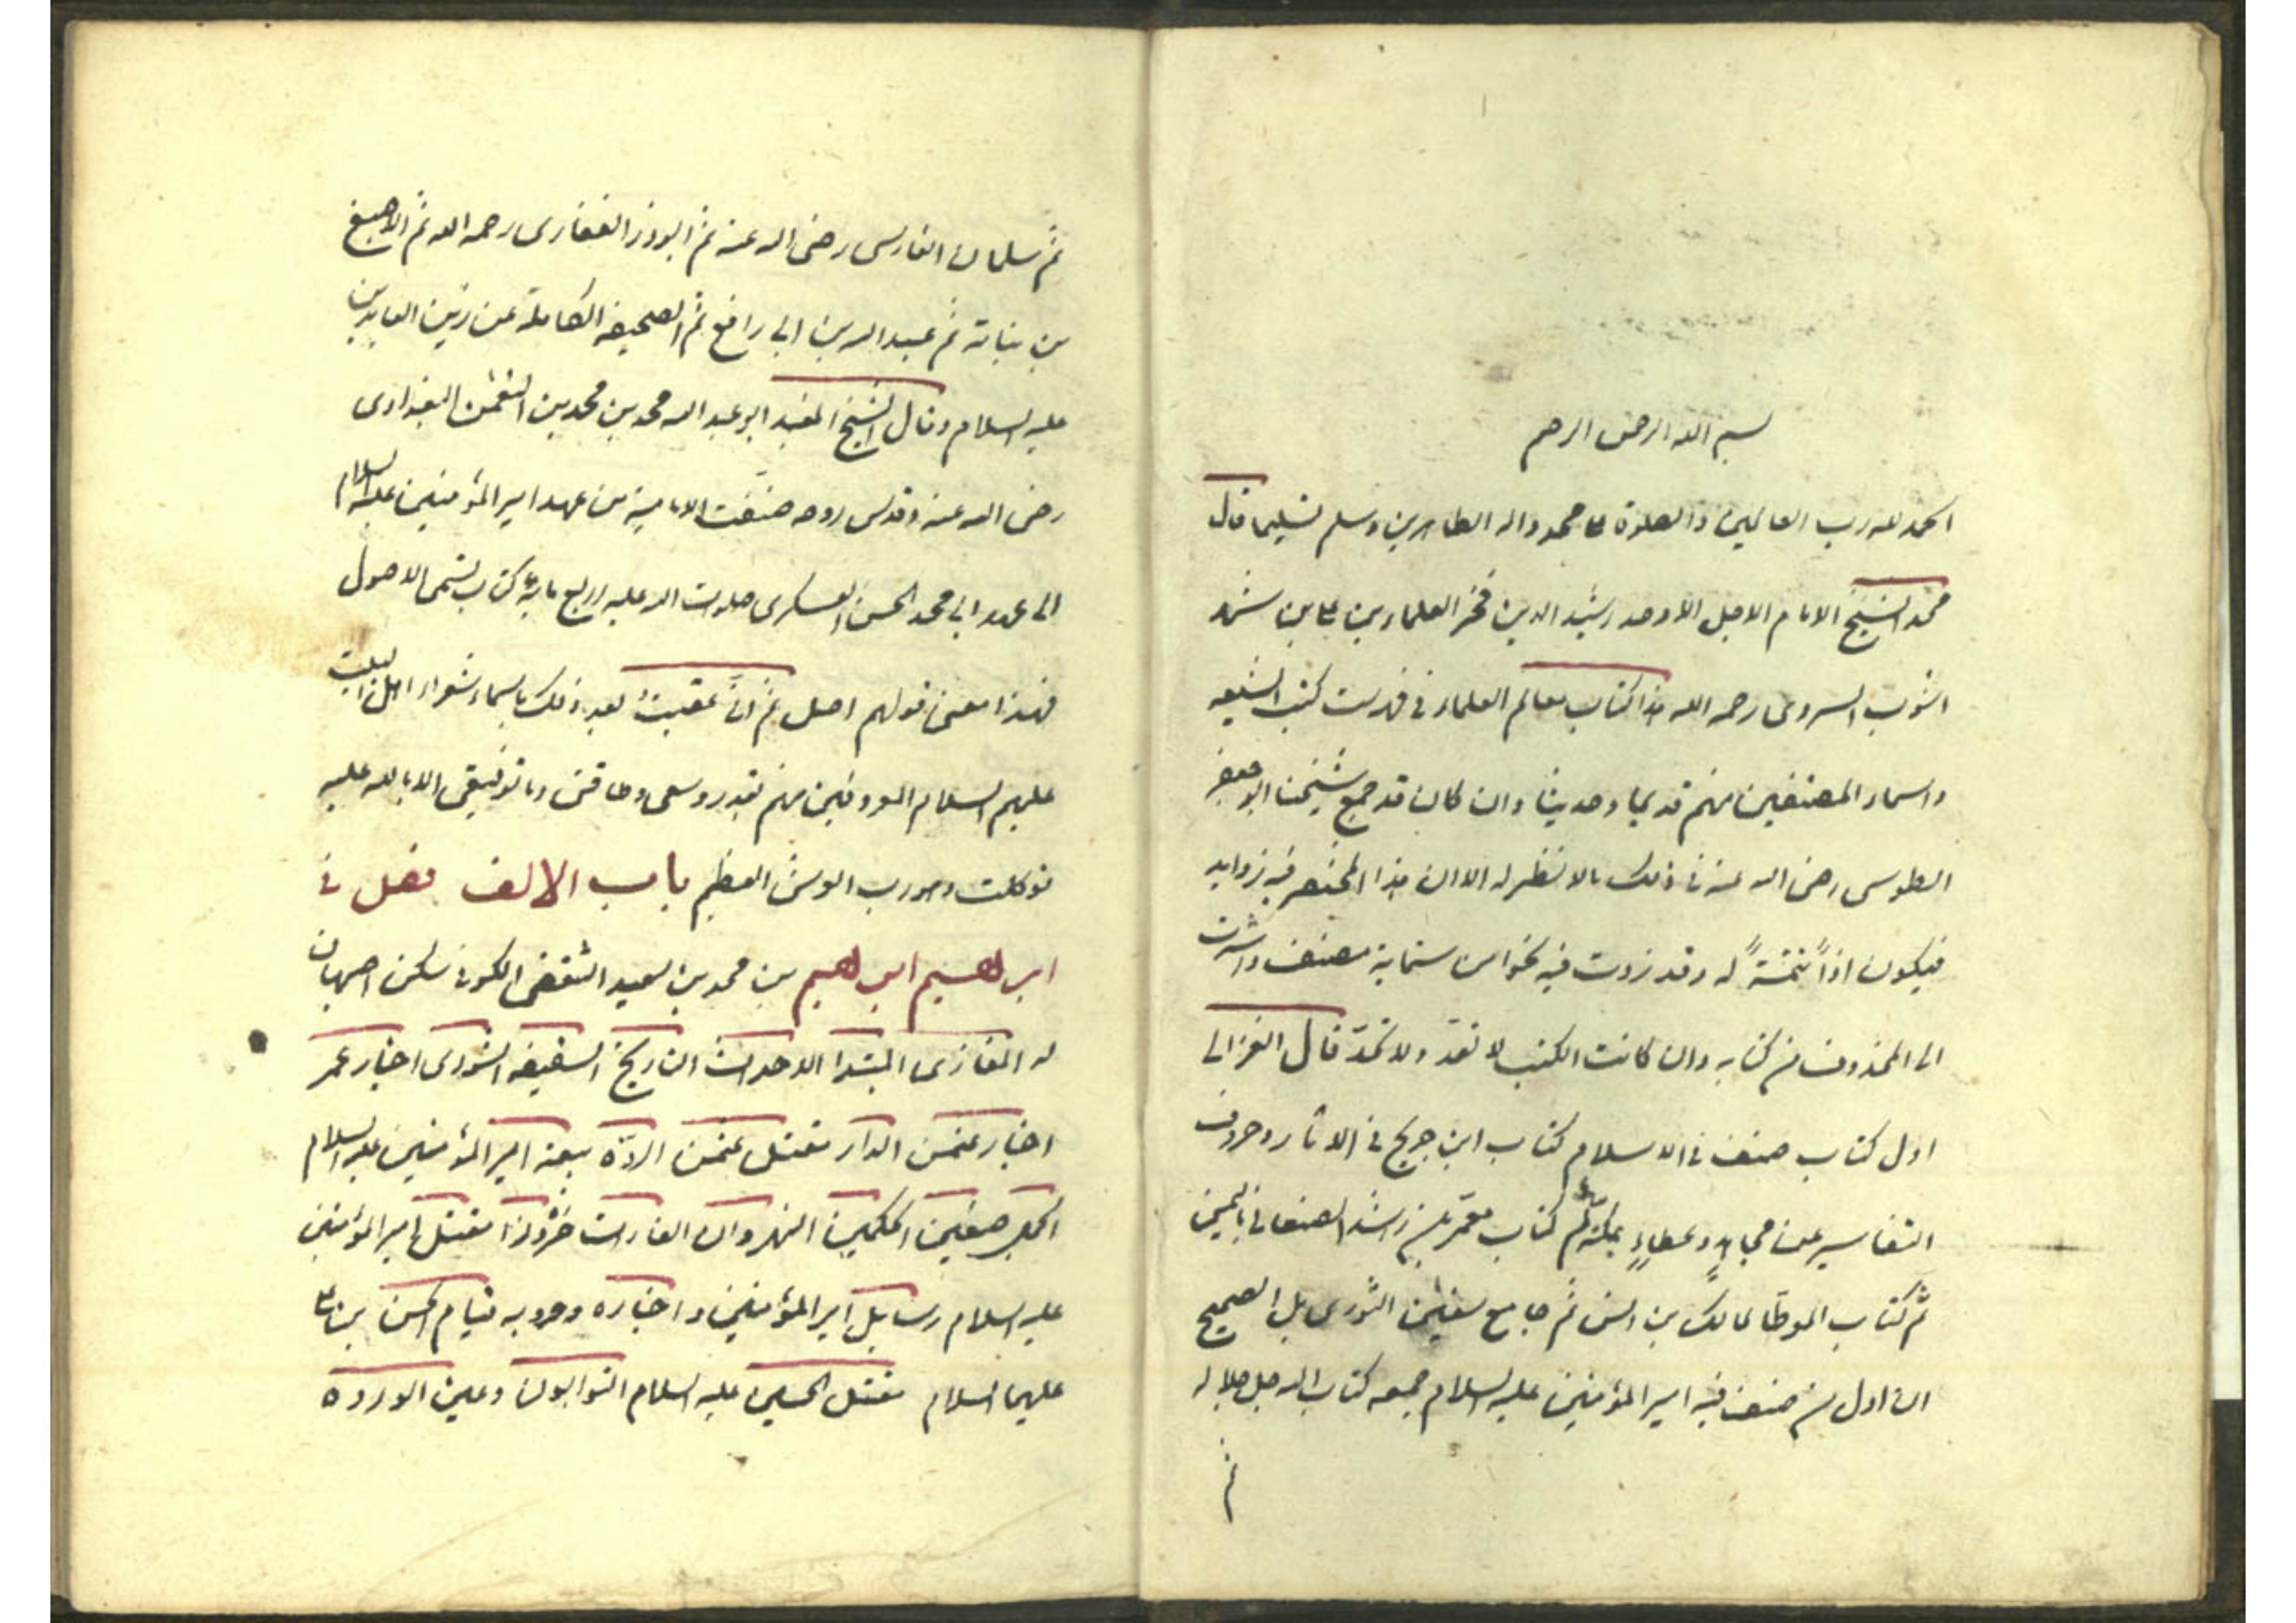 بسم الله الرحمن الرحيم
الحمد لله رب العالمين والصلوة على محمد واله الطاهرين وسلم تسليما قال
محمد الشيخ الامام الاجل الاوحد رشيد الدين فخر العلماء بن على بن شهر
اشوب السروى رحمه الله هذا كتاب معالم العلماء فى فهرست كتب الشيعه
واسماء المصنفين منهم قديما وحديثا وان كان قد جمع شيخنا ابو جعفر
الطوسى رضى الله عنه فى ذلك مالا نظير له الا ان هذا المختصر فيه زوايد
فيكون اذاً تتمّةً له وقد زدت فيه نحوا من ستماية مصنف واشرت
الى المحذوف من كتابه وان كانت الكتب لا تعدّ ولا تحدّ قال الغزالى
اول كتاب صنف فى الاسلام كتاب ابن جريج فى الاثار وحروف
التفاسير عن مجاهدٍ وعطاءٍ بمكة ثم كتاب معمّر بن راشد الصنعانى باليمن
ثم كتاب الموطّا لمالك بن انس ثم جامع سفيٰن الثورى بل الصحيح
ان اول من صنف فيه امير المؤمنين عليه السلام جمعه كتاب الله جل جلاله
ثم
ثم سلمان الفارسى رضى الله عنه ثم ابوذر الغفارى رحمه الله ثم الاصبغ
بن بناتة ثم عبيد الله بن ابى رافع ثم الصحيفه الكاملة عن زين العابدين
عليه السلام وقال الشيخ المفيد ابو عبد الله محمد بن محمد بن النعمٰن البغدادى
رضى الله عنه وقدس روحه صنّفت الامامية من عهد امير المؤمنين عليه السلام
الى عهد ابى محمد الحسن العسكرى صلوات الله عليه اربع ماية كتاب تسمى الاصول
فهذا معنى قولهم اصل ثم انّى عقبتُ بعد ذلك باسماء شعراء اهل البيت
عليهم السلام المعروفين منهم بقدر وسعى وطاقتى وما توفيقى الا بالله عليه
توكلت وهو رب العرش العظيم باب الالف فصل فى
ابرهيم ابرهيم بن محمد بن سعيد الثقفى الكوفى سكن اصبهان
له المغازى المبتدا الاحداث التاريخ السقيفه الشورى اخبار عمر
اخبار عثمٰن الدار مقتل عثمٰن الردّة بيعة امير المؤمنين عليه السلام
الجمل صفين الحكمين النهروان الغارات مقتل امير المؤمنين
عليه السلام رسايل امير المؤمنين واخباره وحروبه قيام الحسن بن على
عليهما السلام مقتل الحسين عليه السلام التوابون وعين الوردة